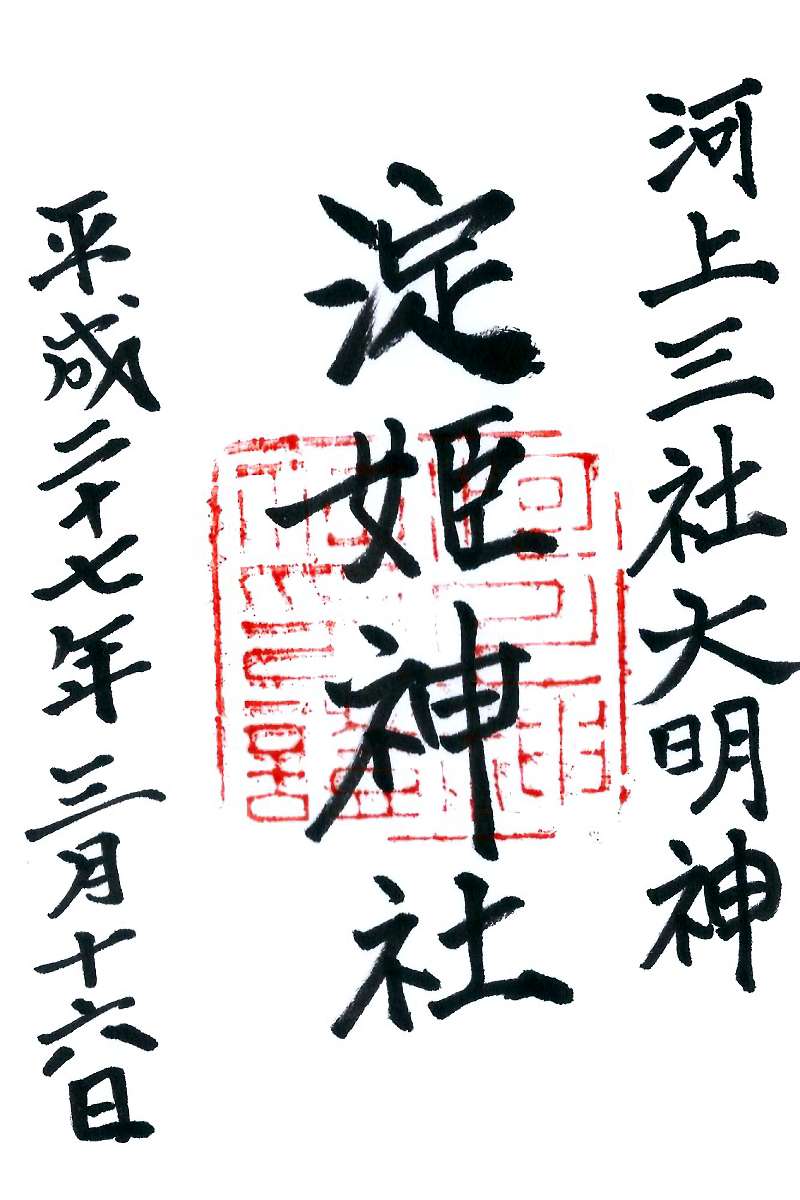 河上三社大明神
淀姫神社
平成二十七年三月十六日